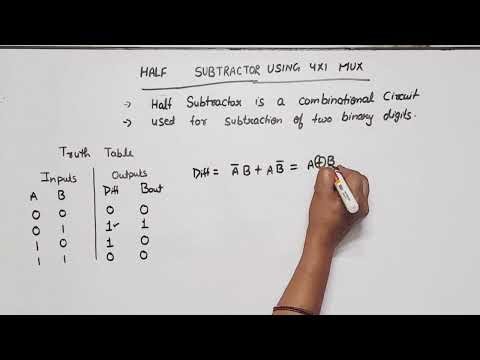 HALF SUBTRACTOR USING 4X1 MUX
→ Half Subtractor is a combinational Circuit
→ used for subtraction of two binary digits.
Truth Table
Inputs Outputs
A B Diff Bout
0 0 0 0
0 1 1 1
1 0 1 0
1 1 0 0
Diff = A̅ B + A B̅ = A ⊕ B